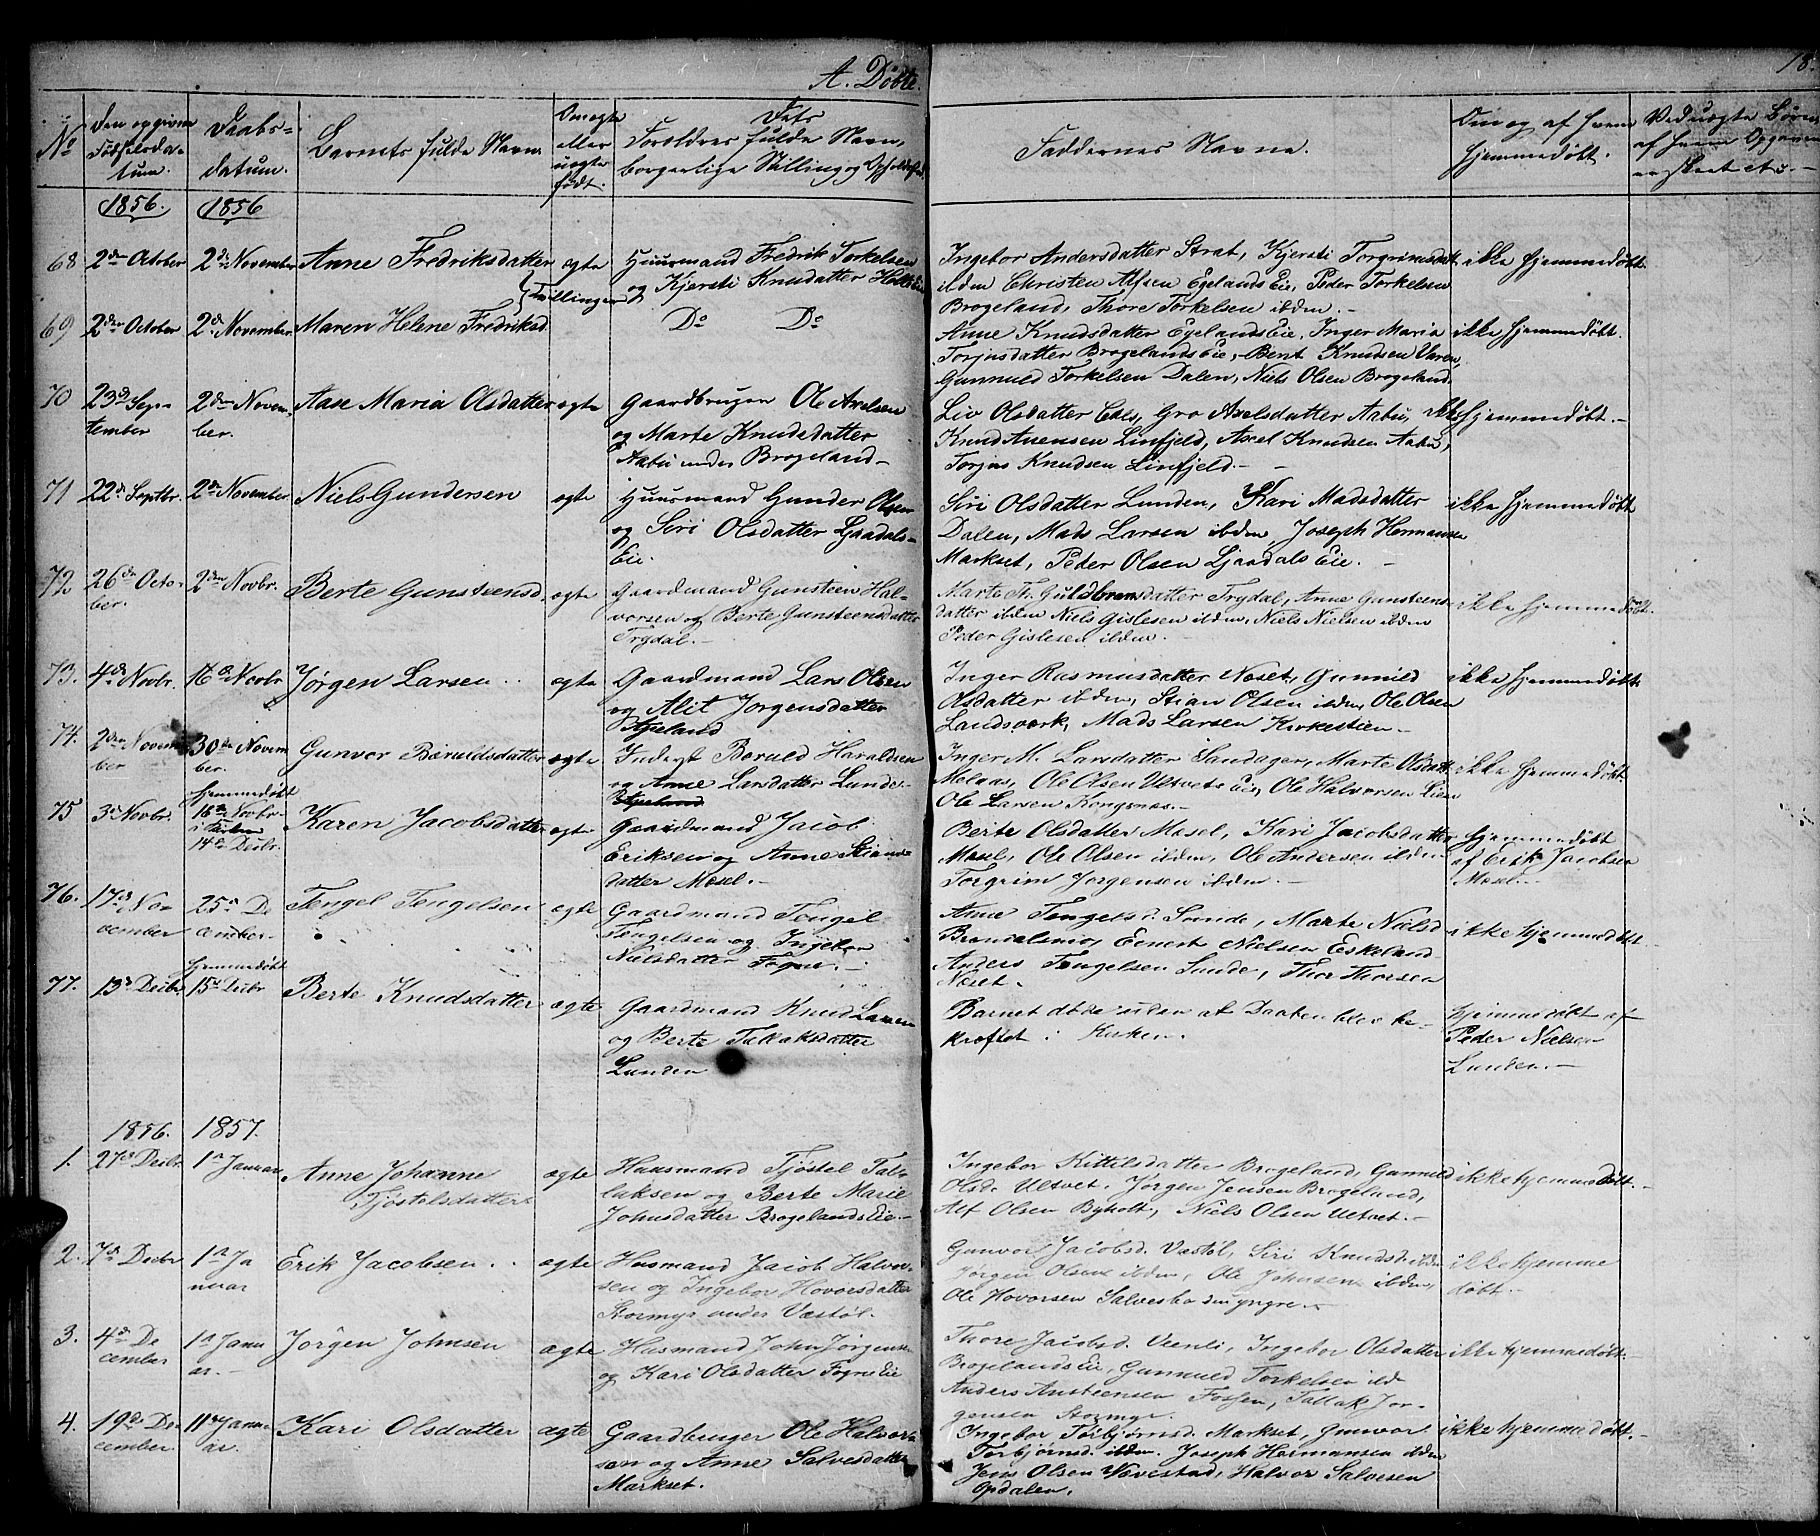 A. Døbte.
18.
No
Den opgivne Fødselsdatum.
Daabsdatum.
Barnets fulde Navn
Om ægte eller uægte født.
Dets Forældres fulde Navn, borgerlige Stilling og Opholdssted
Faddernes Navne.
Om og af hvem hjemmedøbt.
Ved uægte Børn af hvem Opgaven er skeet etc. —
1856. 1856
68 2den October 2d November Anne Fredriksdatter ægte
Huusmand Fredrik Torkelsen
og Kjersti Knudsdatter
Ingebor Andersdatter Strat, Kjersti Torgrimsdat
ibden Christen Alfsen Egelands Eie, Peder Torkelsen
Brøgeland, Thore Torkelsen ibden. —
ikke hjemmedøbt.
(Tvillinger
69 2den October 2d. November. Maren Helene Fredriksd
Do Do
Anne Knudsdatter Egelands Eie, Inger Maria
Torjusdatter Brøgelands Eie, Bent Knudsen Varen,
Gunnuld Torkelsen Dalen, Niels Olsen Brøgeland.
ikke hjemmedøbt.
70 23d September 2den November. Aase Maria Olsdatter ægte
Gaardbruger Ole Axelsen
og Marte Knudsdatter
Aabu under Brøgeland —
Liv Olsdatter Eels, Gro Axelsdatter Aabu,
Knud Auensen Linfjeld, Axel Knudsen Aabu,
Torjus Knudsen Linfjeld. — —
ikke hjemmedøbt. —
71 22d Septbr. 2d November Niels Gundersen ægte
Huusmand Gunder Olsen
og Siri Olsdatter Ljaadals-
Eie.
Siri Olsdatter Lunden, Kari Madsdatter
Dalen, Mads Larsen ibden, Joseph Hermansen
Markset, Peder Olsen Ljaadals Eie. —
ikke hjemmedøbt
72 26de October. 2den Novbr. Berte Gunsteensd. ægte
Gaardmand Gunsteen Hal-
vorsen og Berte Gunsteensdatter
Trydal. —
Marte Th. Guldbransdatter Trydal, Anne Gunsteens-
datter ibden Niels Gislesen ibden, Niels Nielsen ibden
Peder Gislesen ibden. —
ikke hjemmedøbt.
73. 4de Novbr. 16d Novbr Jørgen Larsen ægte
Gaardmand Lars Olsen
og Alit Jørgensdatter
Æjeland
Inger Rasmusdatter Næset, Gunnild
Olsdatter ibden, Stian Olsen ibden, Ole Olsen
Landsværk, Mads Larsen Kirkestien —
ikke hjemmedøbt.
74. 2den November 30de November. Gunvor Bæruldsdatter ægte
Inderst Børuld Haraldsen
og Anne Larsdatter Lunde-
Inger M. Larsdatter Sandager, Marte Olsdatt
Melaas, Ole Olsen Ultvets Eie, Ole Halvorsen Lien
Ole Larsen Kongsnæs. —
ikke hjemmedøbt
75 3d Novbr. hjemmedøbt 16de Novbr. i Kirken 14de Decbr. Karen Jacobsdatter ægte
Gaardmand Jacob
Eriksen og Anne Stians-
datter Mosel. —
Berte Olsdatter Mosel, Kari Jacobsdatter
Mosel, Ole Olsen ibden, Ole Andersen ibden
Torgrim Jørgensen ibden. —
hjemmedøbt
af Erik Jacobsen
Mosel. —
76. 17d November 25d December. Tengel Tengelsen ægte
Gaardmand Tengel
Tengelsen og Ingebor
Nielsdatter Fogne. —
Anne Tengelsd. Sunde, Marte Nielsd
Eenert Nielsen Eskeland
Anders Tengelsen Sunde, Thor Thorsen
Næset.
ikke hjemmedøbt
77. 13d Decbr. hjemmedøbt 15d Decbr Berte Knudsdatter ægte
Gaardmand Knud Larsen
og Berte Tallaksdatter
Lunden
Barnet døde uden at Daaben blev be-
kræftet i Kirken.
hjemmedøbt af
Peder Nielsen
Lunden. —
1856. 1857.
1. 27d Decbr. 1d Januar Anne Johanne Tjøstelsdatter ægte
Huusmand Tjøstel Tal-
laksen og Berte Marie
Johnsdatter Brøgelands Eie. —
Ingebor Kittilsdatter Brøgeland, Gunnuld
Olsd. Ultvet. Jørgen Jensen Brøgeland,
Alf Olsen Byholt, Niels Olsen Ultvet. —
ikke hjemmedøbt. —
2. 7d Decbr 1d Januar Erik Jacobsen. ægte
Husmand Jacob Halvor-
sen og Ingebor Hovorsdatter
Stormyr under Væstøl.
Gunvor Jacobsd. Væstøl, Siri Knudsd. ibden
Jørgen Olsen ibden, Ole Johnsen ibden,
Ole Hovorsen Salvesbo den yngre. —
ikke hjemme
døbt. —
3. 4d December 1d Januar. — Jørgen Johnsen ægte
Husmand John Jørgens-
og Kari Olsdatter Fogne Eie
Thore Jacobsd. Veenli, Ingebor Olsdatter
Brøgelands Eie, Gunnuld Torkelsen ibd
Anders Austeensen Fossen, Tallak Jør-
gensen Stormyr.
ikke hjemmedøbt. —
4. 19de December. 11d Januar. Kari Olsdatter ægte
Gaardbruger Ole Halvor-
sen og Anne Salvesdatter
Markset.
Ingebor Torbjørnsd. Markset, Gunvor
Torbjørnsd. ibden. Joseph Hermansen ibden
Jens Olsen Vovestad, Halvor Salvesen
Opdalen.
ikke hjemmedøbt. —